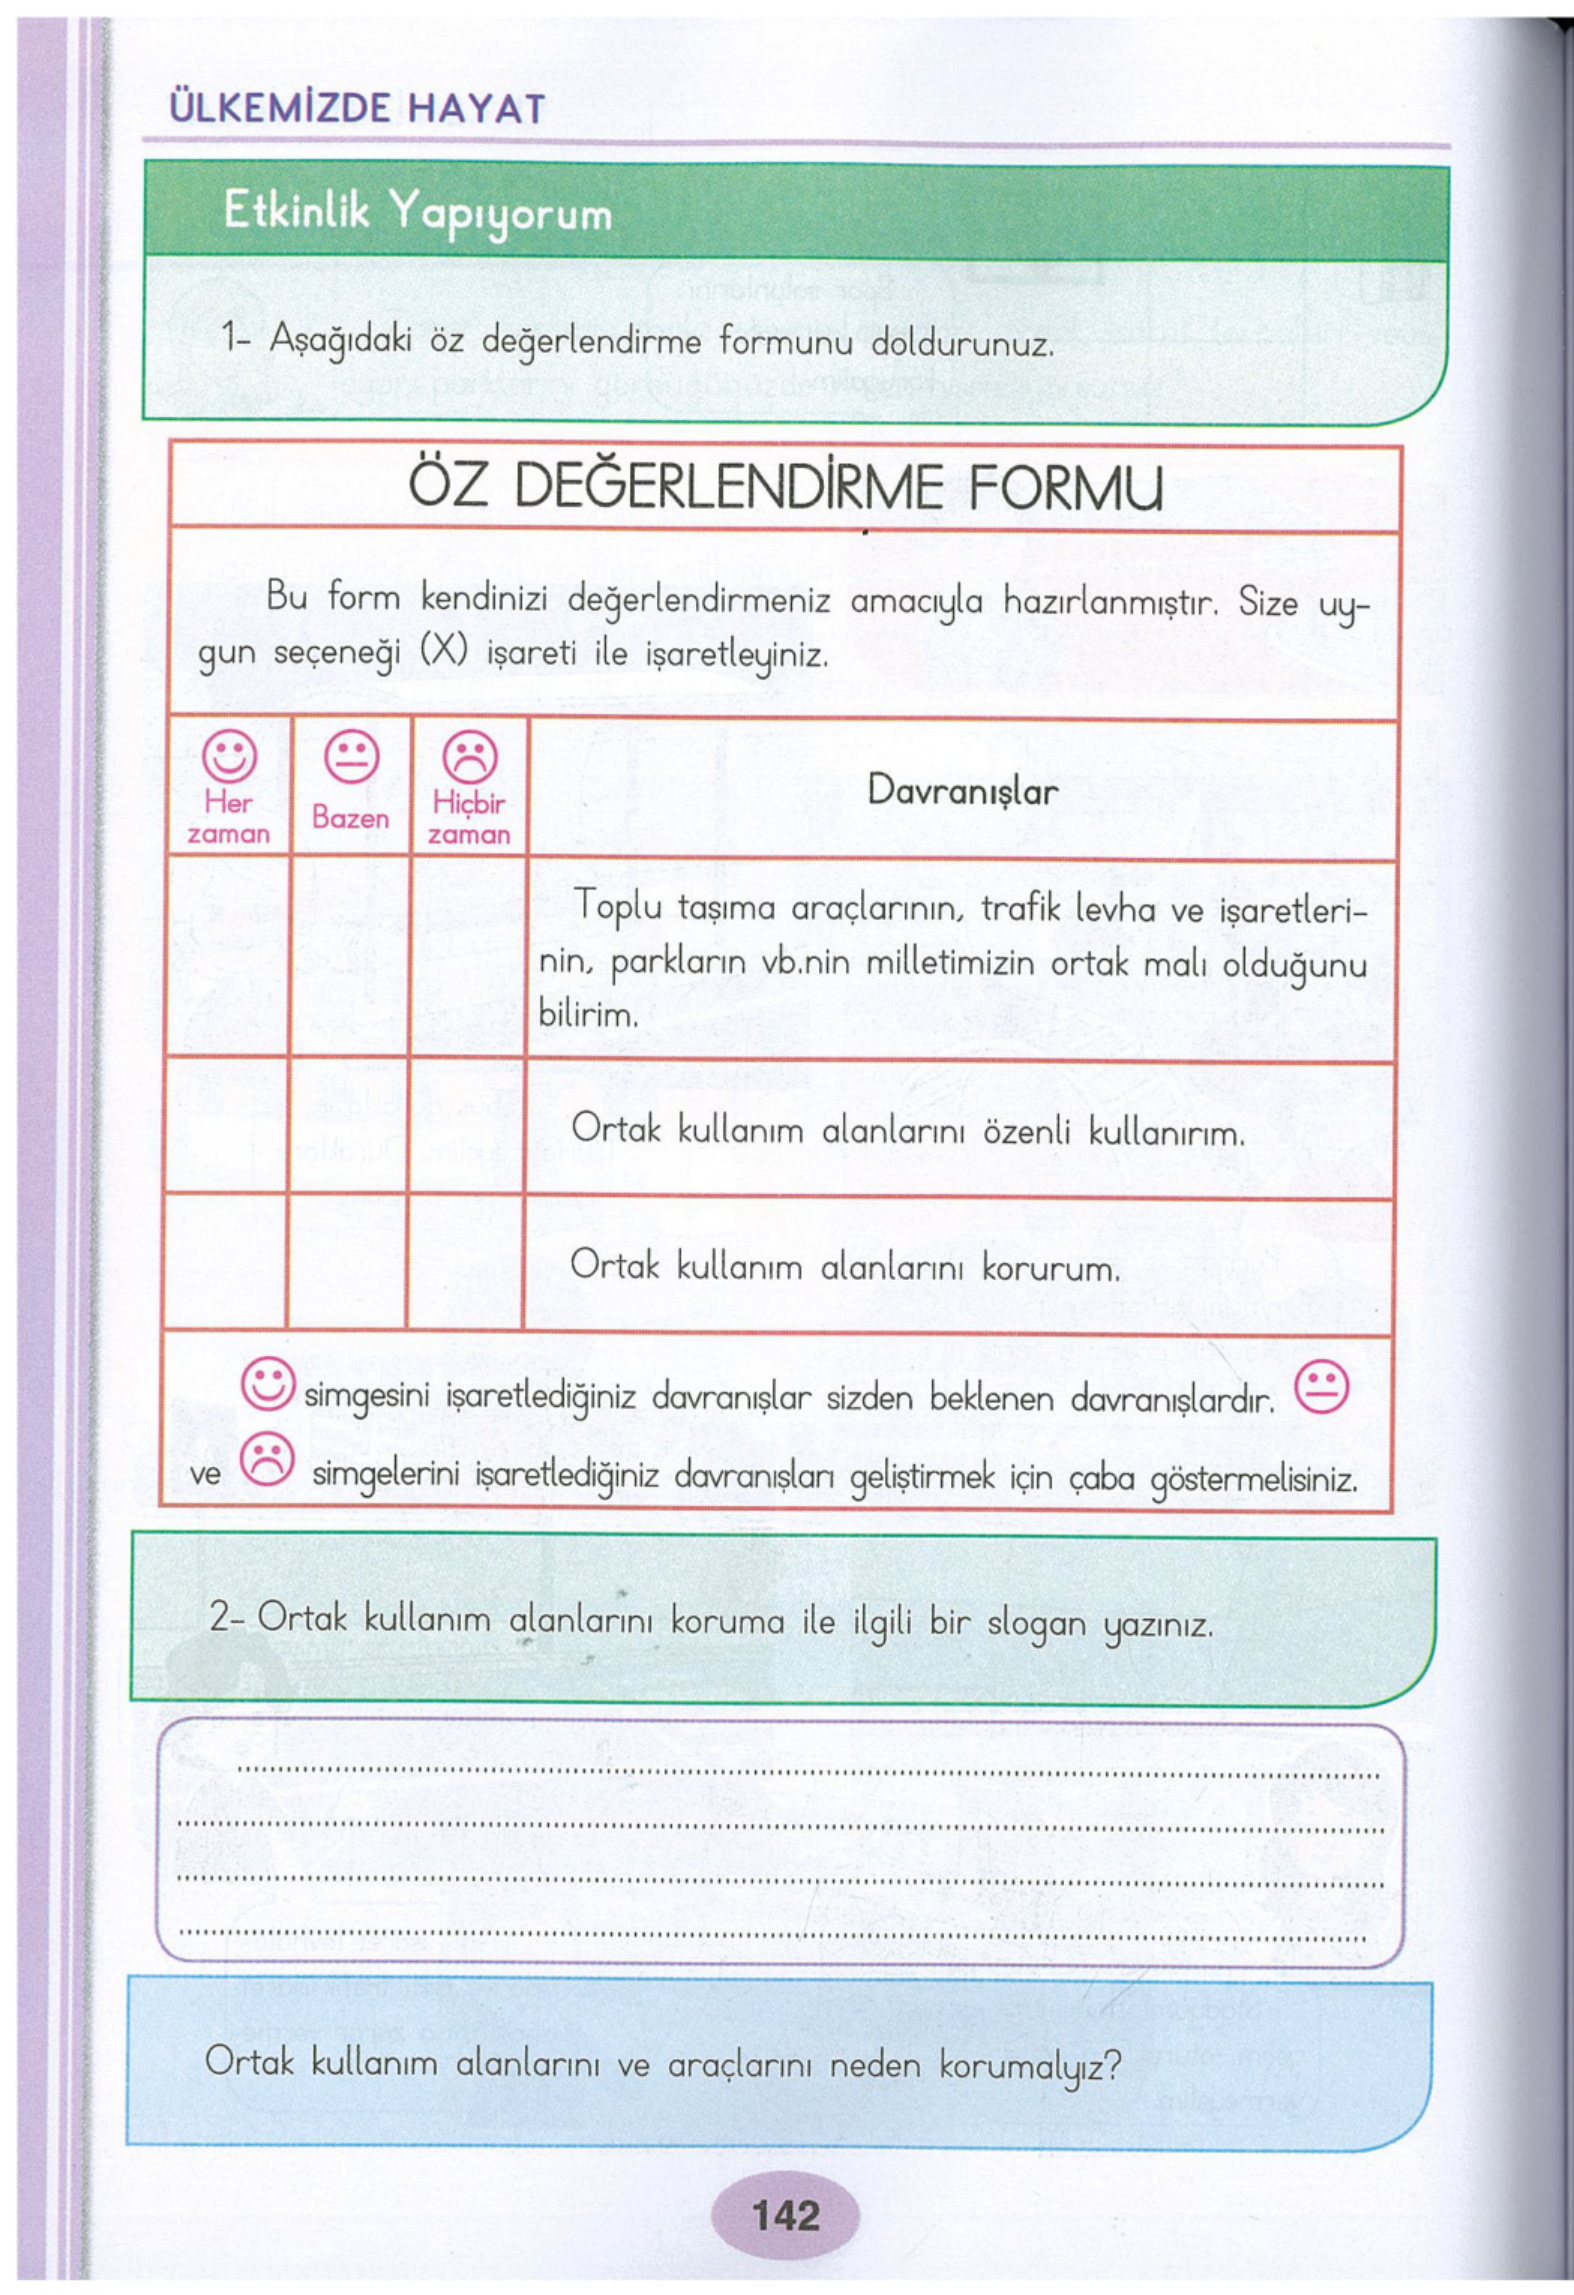 ÜLKEMİZDE HAYAT
Etkinlik Yapıyorum
1- Aşağıdaki öz değerlendirme formunu doldurunuz.
ÖZ DEĞERLENDİRME FORMU
Bu form kendinizi değerlendirmeniz amacıyla hazırlanmıştır. Size uy-
gun seçeneği (X) işareti ile işaretleyiniz.
Her
zaman
Bazen
Hiçbir
zaman
Davranışlar
Toplu taşıma araçlarının, trafik levha ve işaretleri-
nin, parkların vb.nin milletimizin ortak malı olduğunu
bilirim.
Ortak kullanım alanlarını özenli kullanırım.
Ortak kullanım alanlarını korurum.
simgesini işaretlediğiniz davranışlar sizden beklenen davranışlardır.
ve simgelerini işaretlediğiniz davranışları geliştirmek için çaba göstermelisiniz.
2- Ortak kullanım alanlarını koruma ile ilgili bir slogan yazınız.
Ortak kullanım alanlarını ve araçlarını neden korumalyız?
142